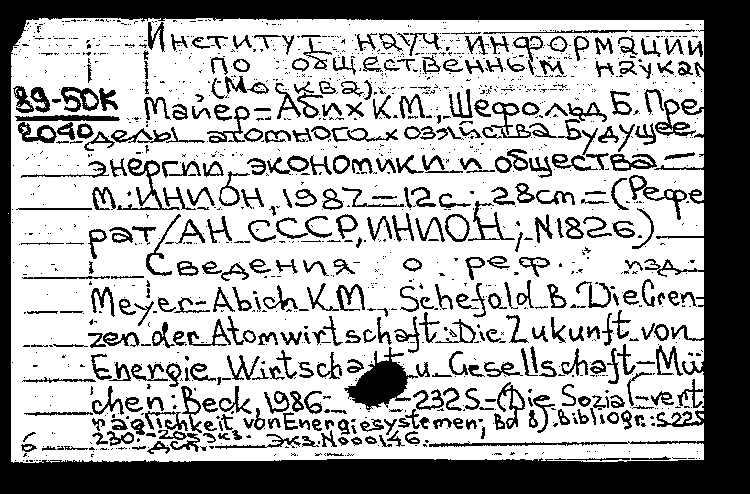 Институт науч. информации
по общественным наукам
(Москва).
89-50К
2040
Майер-Абих К.М., Шефольд Б. Пре-
делы атомного хозяйства. Будущее
энергии, экономики и общества.—
М.: ИНИОН, 1987.—12с.; 28cm.=(Рефе-
рат/АН СССР, ИНИОН; N1826.)
Сведения о реф. изд.:
Meyer-Abich K.M., Schefold B. Die Gren-
zen der Atomwirtschaft: Die Zukunft von
Energie, Wirtschaft u. Gesellschaft.-Mün-
chen: Beck, 1986. -232S.-(Die Sozial-vert-
räglichkeit von Energiesystemen; Bd 8). Bibliogr.: S.225-
230.-205экз. Экз.N000146.
ДСП.
6